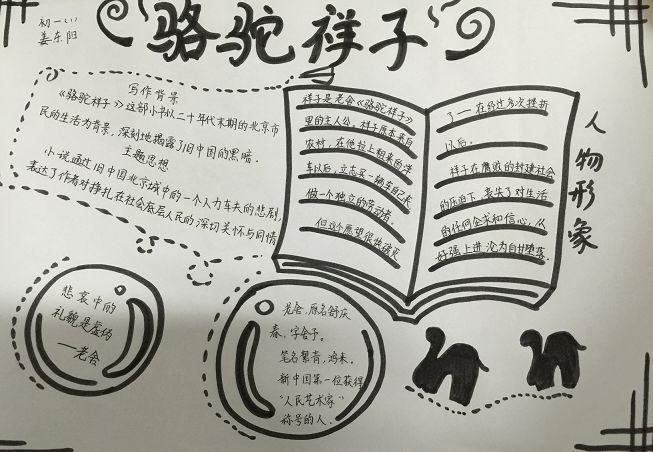 骆驼祥子
初一(1)
姜东阳
写作背景
《骆驼祥子》这部小书以二十年代末期的北京市
民的生活为背景,深刻地揭露了旧中国的黑暗.
主题思想
小说通过旧中国北京城中的一个人力车夫的悲剧,
表达了作者对挣扎在社会底层人民的深切关怀与同情
祥子是老舍《骆驼祥子》
里的主人公,祥子原本来自
农村,在他拉上租来的洋
车以后,立志买一辆车自己长
做一个独立的劳动者.
但这个愿望很快破灭
了——在经过多次挫折
以后.
祥子在腐败的封建社会
的压迫下,丧失了对生活
的任何企求和信心,从
好强上进沦为自甘堕落.
人物形象
悲哀中的
礼貌是虚伪
—老舍
老舍,原名舒庆
春,字舍予。
笔名絜青,鸿来.
新中国第一位获得
"人民艺术家"
称号的人.